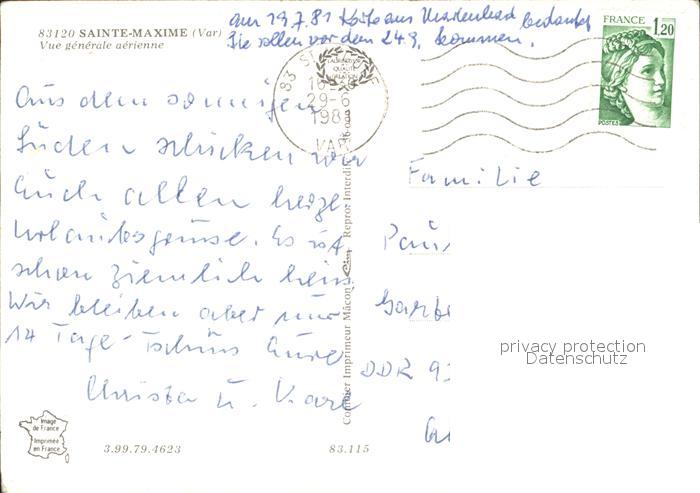 83120 SAINTE-MAXIME (Var)
Vue générale aérienne
am 19.7.81 Karte aus bedankt
Sie sollen vor dem 24.9. kommen.
FRANCE 1,20
POSTES
83 ST
29-6
198
VAR
Aus dem sonnigen
Süden schicken wir
Euch allen
Urlaubsgrüsse. Es ist
schon ziemlich heiss
Wir bleiben aber nur
14 Tage - Tschüss Eure
Christa u. Karl
Familie
DDR
privacy protection
Datenschutz
Combier Imprimeur Mâcon Cim Reprod. Interdite
Image
de France
Imprimée
en France
3.99.79.4623
83.115